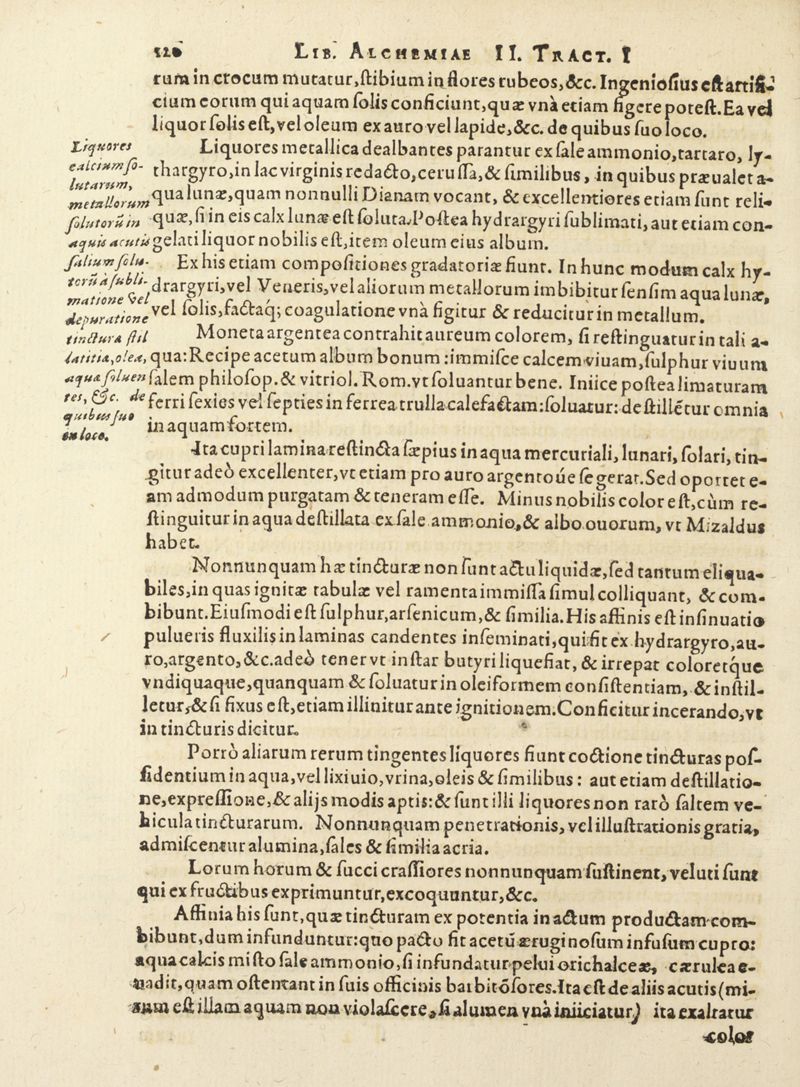 120 LIB. ALCHEMIAE II. TRACT. I
rum in crocum mutatur,ſtibium in flores rubeos,&c. Ingenioſius eſt artifi-
cium eorum qui aquam ſolis conficiunt,quæ vnà etiam figere poteſt. Ea vel
liquor ſolis eſt,vel oleum ex auro vel lapide,&c. de quibus ſuo loco.
Liquores metallica dealbantes parantur ex ſale ammonio,tartaro, ly-
thargyro,in lac virginis redacto,ceruſſa,& ſimilibus, in quibus præualet a-
qua lunæ,quam nonnulli Dianam vocant, & excellentiores etiam ſunt reli-
quæ,ſi in eis calx lunæ eſt ſoluta.Poſtea hydrargyri ſublimati,aut etiam con-
gelati liquor nobilis eſt,item oleum eius album.
Ex his etiam compoſitiones gradatoriæ fiunt. In hunc modum calx hy-
drargyri,vel Veneris,vel aliorum metallorum imbibitur ſenſim aqua lunæ,
vel ſolis,factaq; coagulatione vnà figitur & reducitur in metallum.
Moneta argentea contrahit aureum colorem, ſi reſtinguatur in tali a-
qua:Recipe acetum album bonum :immiſce calcem viuam,ſulphur viuum
ſalem philoſop.& vitriol. Rom.vt ſoluantur bene. Iniice poſtea limaturam
ferri ſexies vel ſepties in ferrea trulla calefactam:ſoluatur: deſtillétur omnia
in aquam fortem.
Ita cupri lamina reſtincta ſæpius in aqua mercuriali, lunari, ſolari, tin-
gitur adeò excellenter,vt etiam pro auro argentoúe ſe gerat.Sed oportet e-
am admodum purgatam & teneram eſſe. Minus nobilis color eſt,cùm re-
ſtinguitur in aqua deſtillata ex ſale ammonio,& albo ouorum, vt Mizaldus
habet.
Nonnunquam hæ tincturæ non ſunt actu liquidæ,ſed tantum eliqua-
biles,in quas ignitæ tabulæ vel ramenta immiſſa ſimul colliquant, & com-
bibunt.Eiuſmodi eſt ſulphur,arſenicum,& ſimilia. His affinis eſt inſinuatio
pulueris fluxilis in laminas candentes inſeminati,qui fit ex hydrargyro,au-
ro,argento,&c.adeò tener vt inſtar butyri liquefiat, & irrepat coloretq́ue
vndiquaque,quanquam & ſoluatur in oleiformem conſiſtentiam, & inſtil-
letur,& ſi fixus eſt,etiam illinitur ante ignitionem.Conficitur incerando,vt
in tincturis dicitur.
Porrò aliarum rerum tingentes liquores fiunt coctione tincturas poſ-
ſidentium in aqua,vel lixiuio,vrina,oleis & ſimilibus: aut etiam deſtillatio-
ne,expreſſione,& alijs modis aptis:& ſunt illi liquores non rarò ſaltem ve-
hicula tincturarum. Nonnunquam penetrationis, vel illuſtrationis gratia,
admiſcentur alumina,ſales & ſimilia acria.
Lorum horum & ſucci craſſiores nonnunquam ſuſtinent, veluti ſunt
qui ex fructibus exprimuntur,excoquuntur,&c.
Affinia his ſunt,quæ tincturam ex potentia in actum productam com-
bibunt,dum infunduntur:quo pacto fit acetū æruginoſum infuſum cupro:
aqua calcis miſto ſale ammonio,ſi infundatur pelui orichalceæ, cærulea e-
uadit,quam oſtentant in ſuis officinis barbitōſores.Ita eſt de aliis acutis(mi-
rum eſt illam aquam non violaſcere,ſi alumen vnà iniiciatur) ita exaltatur
color
Liquores
calcium ſo-
lutarum,
metallorum
ſolutorū in
aquis acutis
ſalium ſolu-
torū a ſubli-
matione vel
depuratione
tinctura ſtil
latitia,olea,
aqua ſoluen
tes, &c. de
quibus ſuo
loco.